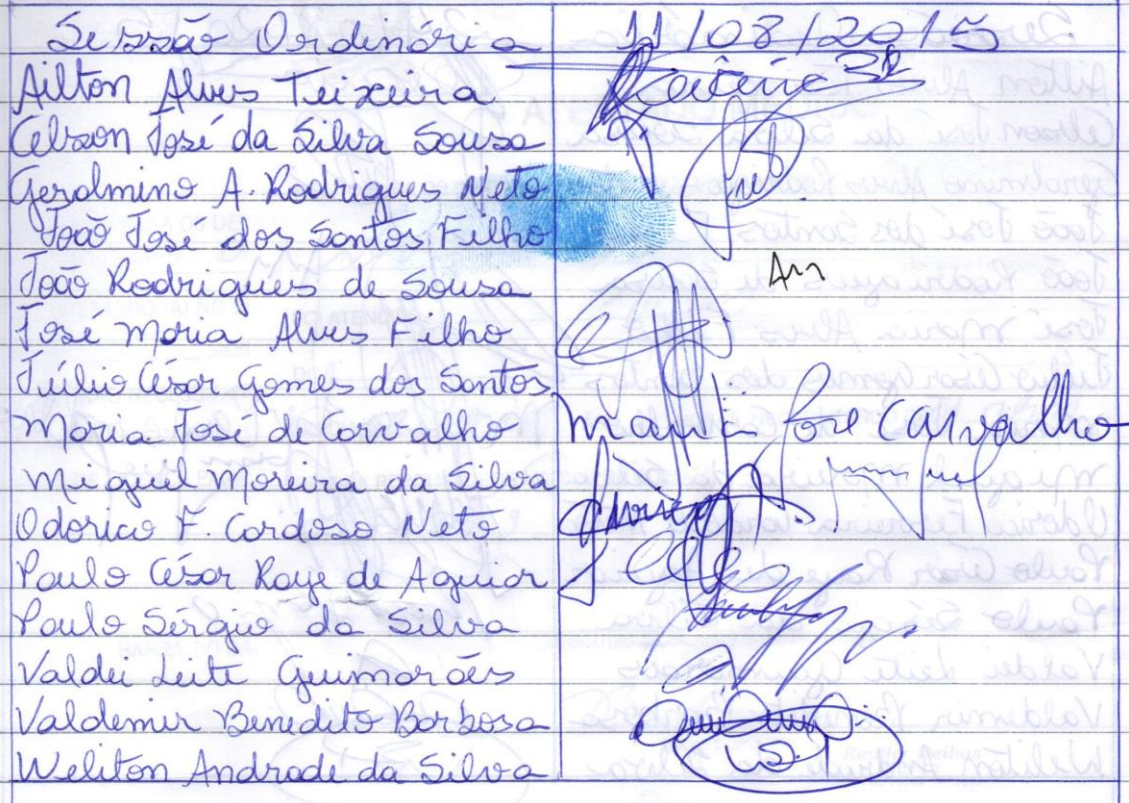 Sessão Ordinária 11/08/2015
Ailton Alves Teixeira
Celson José da Silva Sousa
Geralmino A. Rodrigues Neto
João José dos Santos Filho
João Rodrigues de Sousa
José Maria Alves Filho
Júlio César Gomes dos Santos
Maria José de Carvalho Maria Jose Carvalho
Miguel Moreira da Silva
Odorico F. Cardoso Neto
Paulo César Raye de Aguiar
Paulo Sérgio da Silva
Valdei Leite Guimarães
Valdemir Benedito Barbosa
Weliton Andrade da Silva